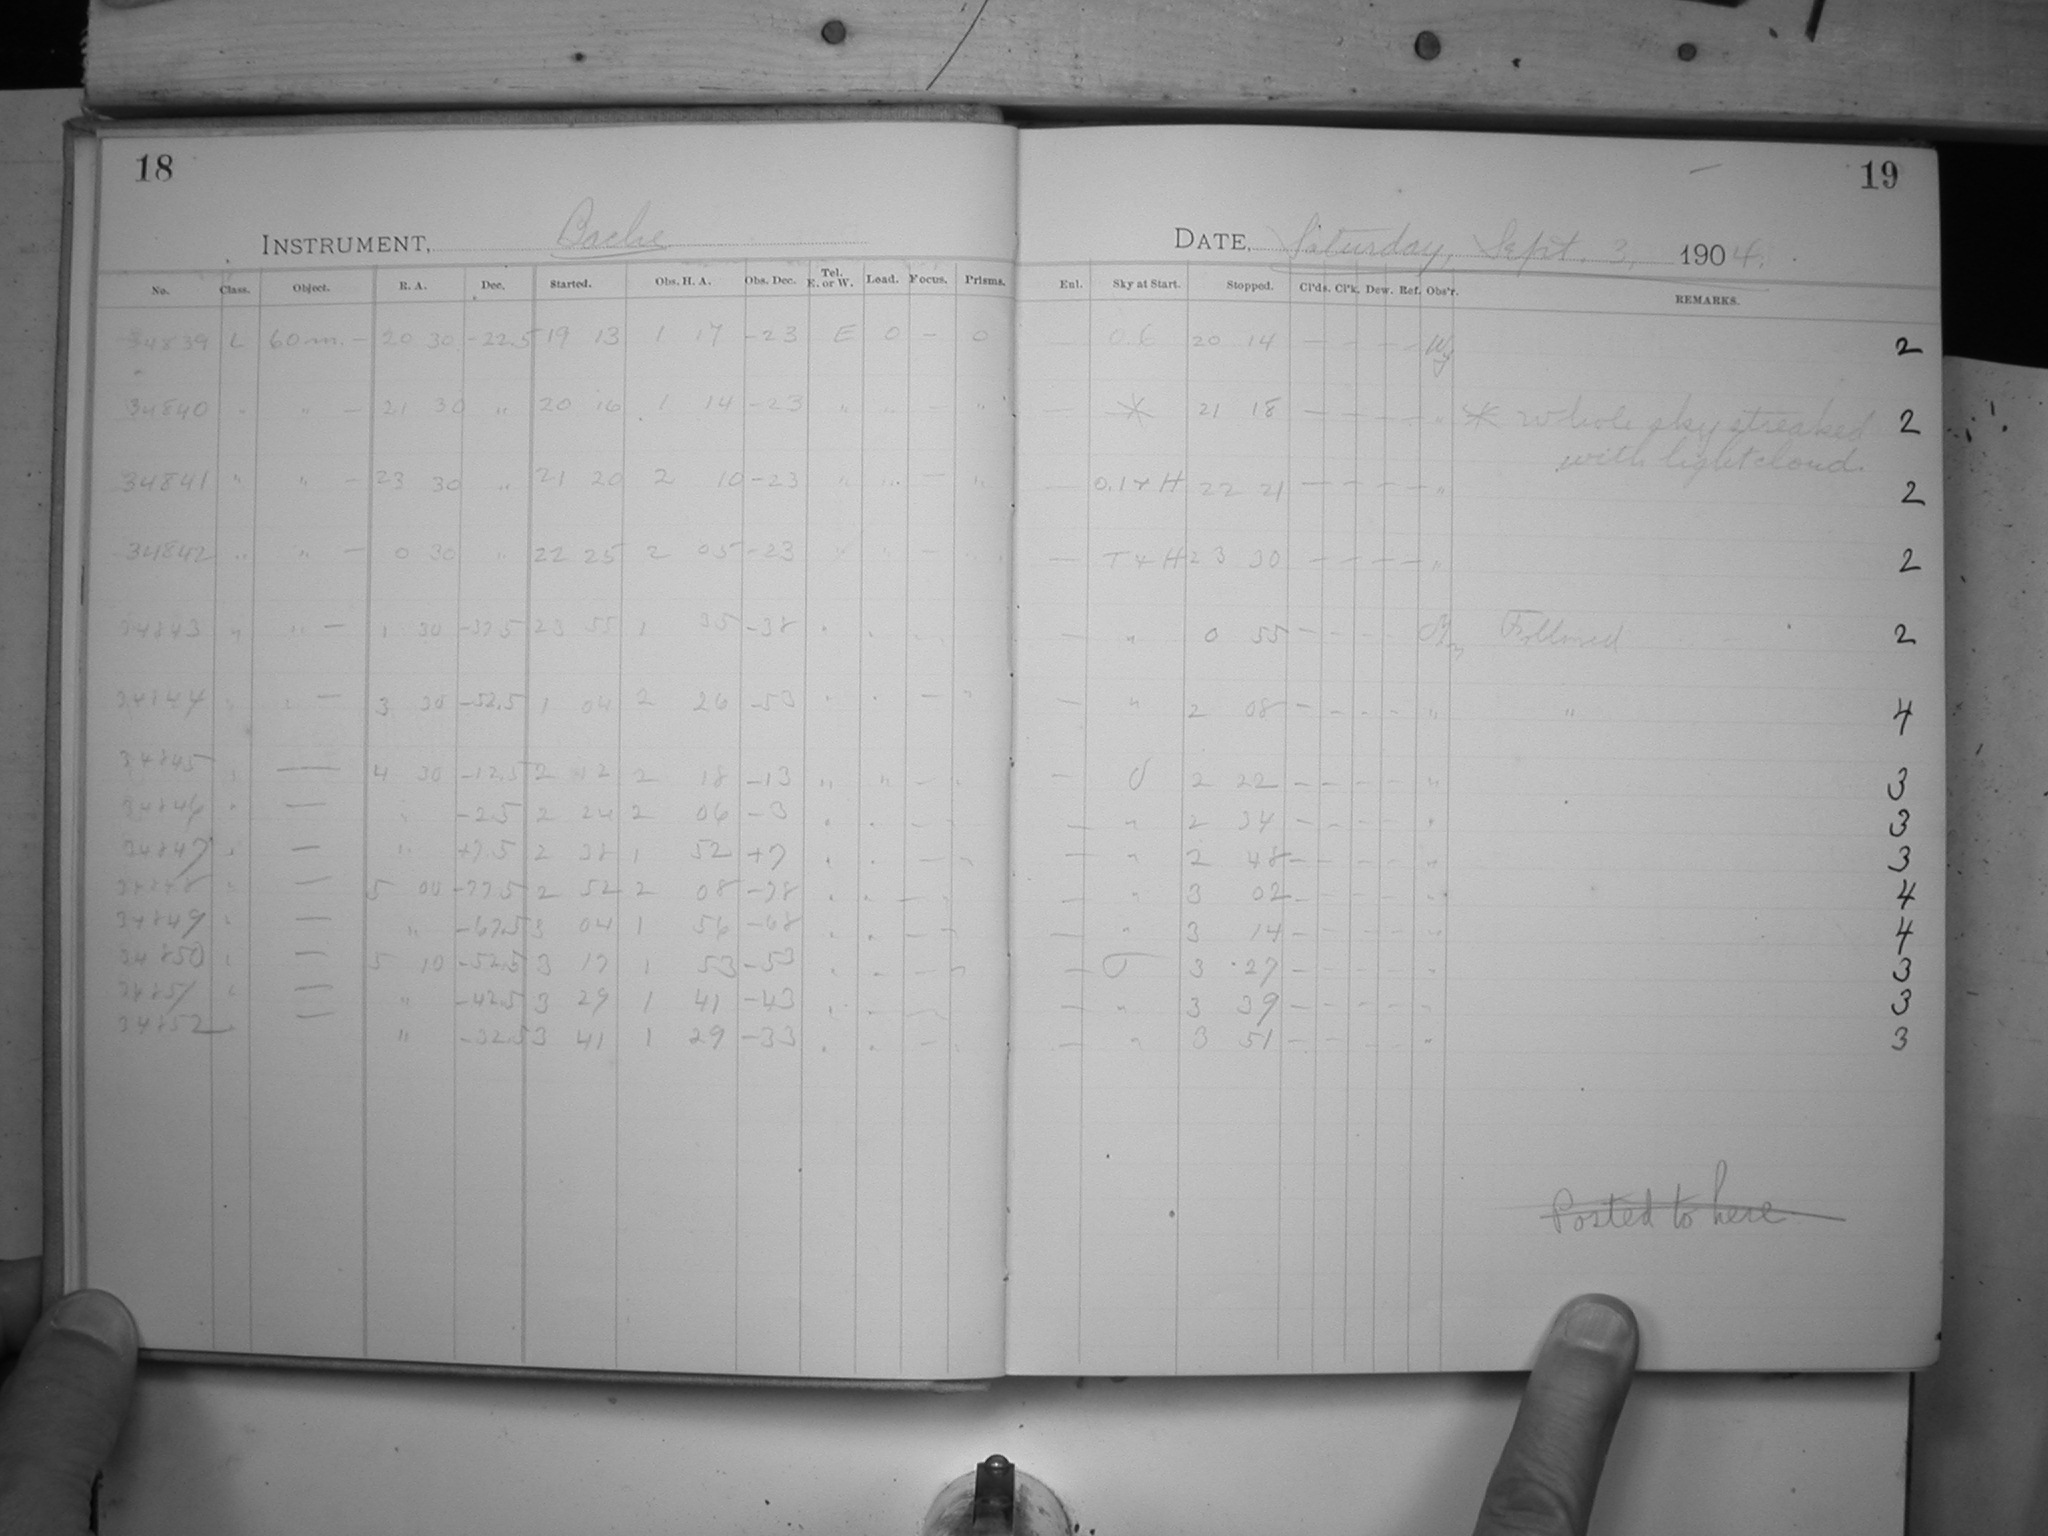 18
19
INSTRUMENT, Bache
DATE, Saturday, Sept. 3, 1904.
No. Class. Object. R. A. Dec. Started. Obs. H. A. Obs. Dec. Tel. E. or W. Load. Focus. Prisms. Enl. Sky at Start. Stopped. Cl'ds. Cl'k. Dew. Ref. Obs'r. REMARKS.
34839 L 60 m. - 20 30 -22.5 19 13 1 17 -23 E 0 - 0 — 0.6 20 14 - - - - 2
34840 " " - 21 30 " 20 16 1 14 -23 " " - " — * 21 18 - - - - " * Whole sky streaked 2
with light cloud.
34841 " " - 23 30 " 21 20 2 10 -23 " " - " — 0.1 + H 22 21 - - - - " 2
34842 " " - 0 30 " 22 25 2 05 -23 " " - " — T + H 23 30 - - - - " 2
34843 " " - 1 30 -37.5 23 55 1 35 -38 " " - " — " 0 55 - - - - Followed 2
34844 " " - 3 30 -52.5 1 04 2 26 -53 " " - " — " 2 08 - - - - " " 4
34845 " — 4 30 -12.5 2 12 2 18 -13 " " - " — 2 22 - - - - " 3
34846 " — " -2.5 2 24 2 06 -3 " " - " — " 2 34 - - - - " 3
34847 " — " +7.5 2 38 1 52 +7 " " - " — " 2 48 - - - - " 3
34848 " — 5 00 -77.5 2 52 2 08 -78 " " - " — " 3 02 - - - - " 4
34849 " — " -67.5 3 04 1 56 -68 " " - " — " 3 14 - - - - " 4
34850 " — 5 10 -52.5 3 17 1 53 -53 " " - " — 3 27 - - - - " 3
34851 " — " -42.5 3 29 1 41 -43 " " - " — " 3 39 - - - - " 3
34852 " — " -32.5 3 41 1 29 -33 " " - " — " 3 51 - - - - " 3
Posted to here